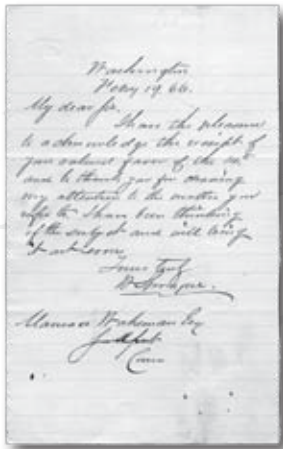 Washington
19 66.
My dear Sir.
I have the pleasure
to acknowledge the receipt of
your valued favor of the
and to thank you for drawing
my attention to the matter you
refer to I have been thinking
of the subject and will bring
it at once
Yours Truly
W Sprague.
Wakeman Esq
Conn